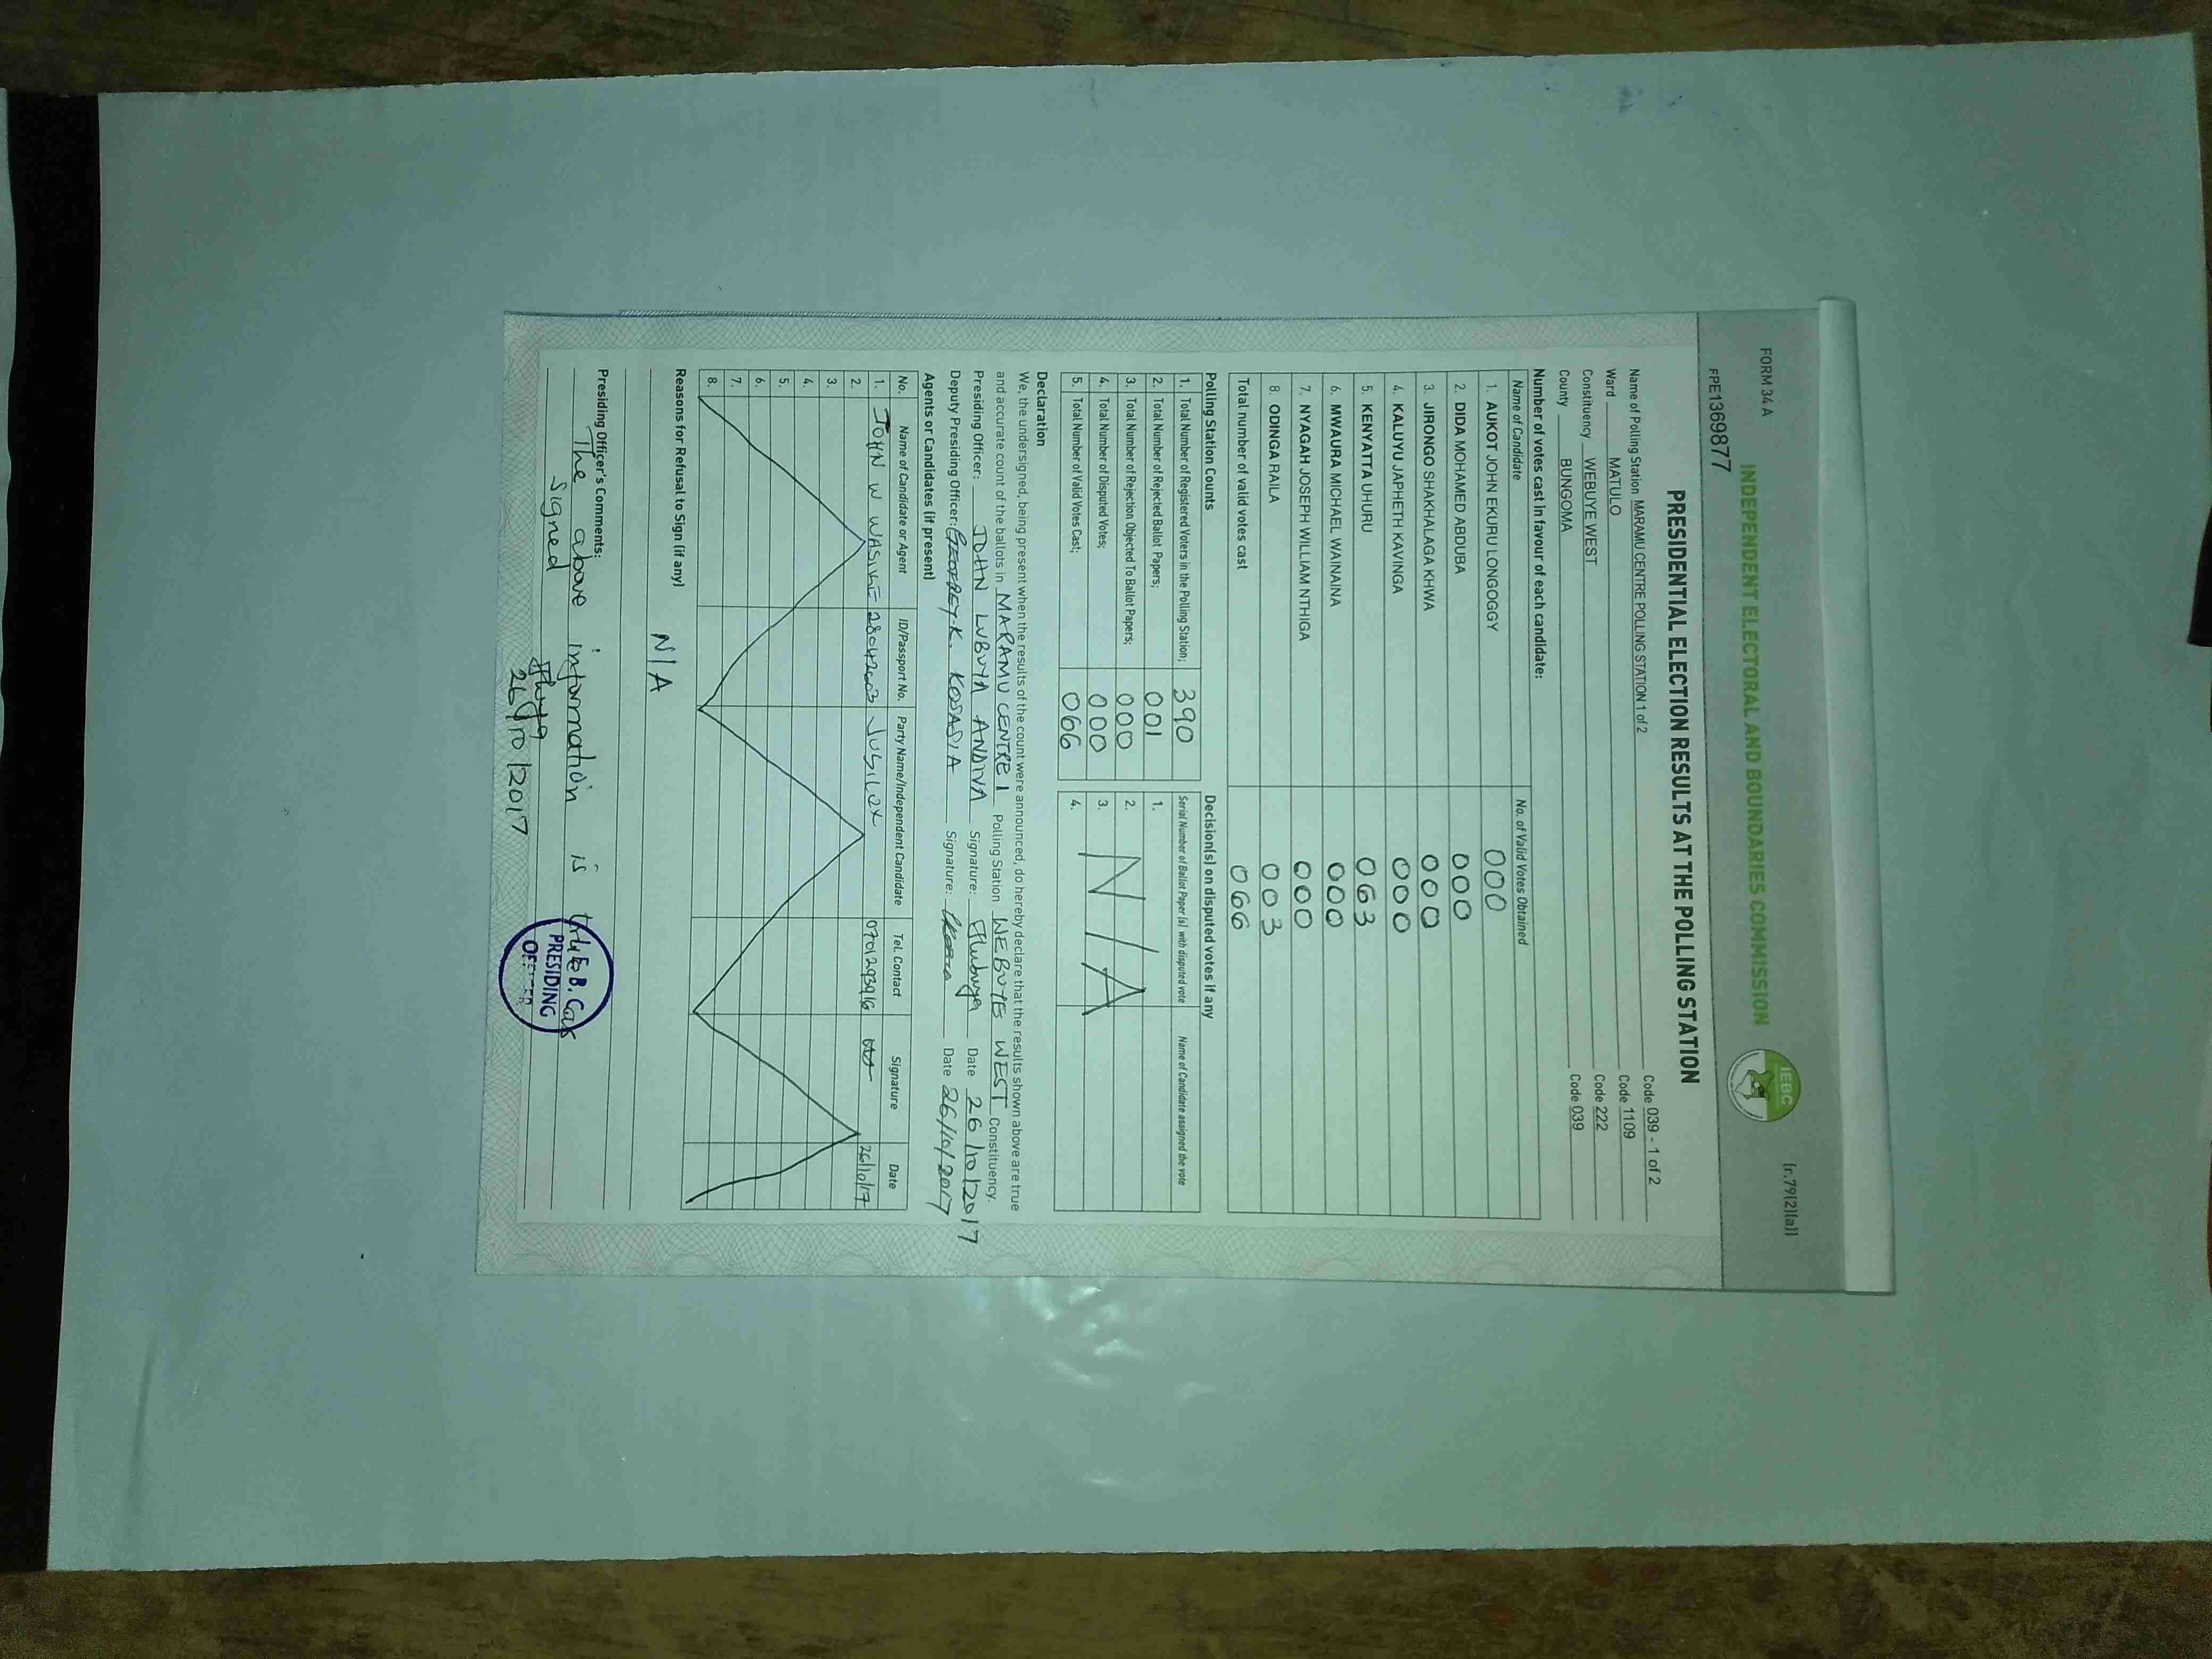 FORM 34 A
(r.79(2)(a))
INDEPENDENT ELECTORAL AND BOUNDARIES COMMISSION
IEBC
FPE1369877
PRESIDENTIAL ELECTION RESULTS AT THE POLLING STATION
Name of Polling Station MARAMU CENTRE POLLING STATION 1 of 2 Code 039 - 1 of 2
Ward MATULO Code 1109
Constituency WEBUYE WEST Code 222
County BUNGOMA Code 039
Number of votes cast in favour of each candidate:
Name of Candidate No. of Valid Votes Obtained
1. AUKOT JOHN EKURU LONGOGGY 000
2. DIDA MOHAMED ABDUBA 000
3. JIRONGO SHAKHALAGA KHWA 000
4. KALUYU JAPHETH KAVINGA 000
5. KENYATTA UHURU 063
6. MWAURA MICHAEL WAINAINA 000
7. NYAGAH JOSEPH WILLIAM NTHIGA 000
8. ODINGA RAILA 003
Total number of valid votes cast 066
Polling Station Counts Decision(s) on disputed votes if any
1. Total Number of Registered Voters in the Polling Station; 390 Serial Number of Ballot Paper (s) with disputed vote Name of Candidate assigned the vote
2. Total Number of Rejected Ballot Papers; 001 1.
3. Total Number of Rejection Objected To Ballot Papers; 000 2.
4. Total Number of Disputed Votes; 000 3.
5. Total Number of Valid Votes Cast; 066 4.
N/A
Declaration
We, the undersigned, being present when the results of the count were announced, do hereby declare that the results shown above are true
and accurate count of the ballots in MARAMU CENTRE 1 Polling Station WEBUYE WEST Constituency.
Presiding Officer: JOHN LUBUYA ANDIVA Signature: Date 26/10/2017
Deputy Presiding Officer: GEOFFREY K. KOSASIA Signature: Date 26/10/2017
Agents or Candidates (if present)
No. Name of Candidate or Agent ID/Passport No. Party Name/Independent Candidate Tel. Contact Signature Date
1. JOHN W WASIKE 28042603 JUBILEE 0701293916 26/10/17
2.
3.
4.
5.
6.
7.
8.
Reasons for Refusal to Sign (if any)
N/A
Presiding Officer's Comments:
The above information is
signed
26/10/2017
PRESIDING
OFFICER